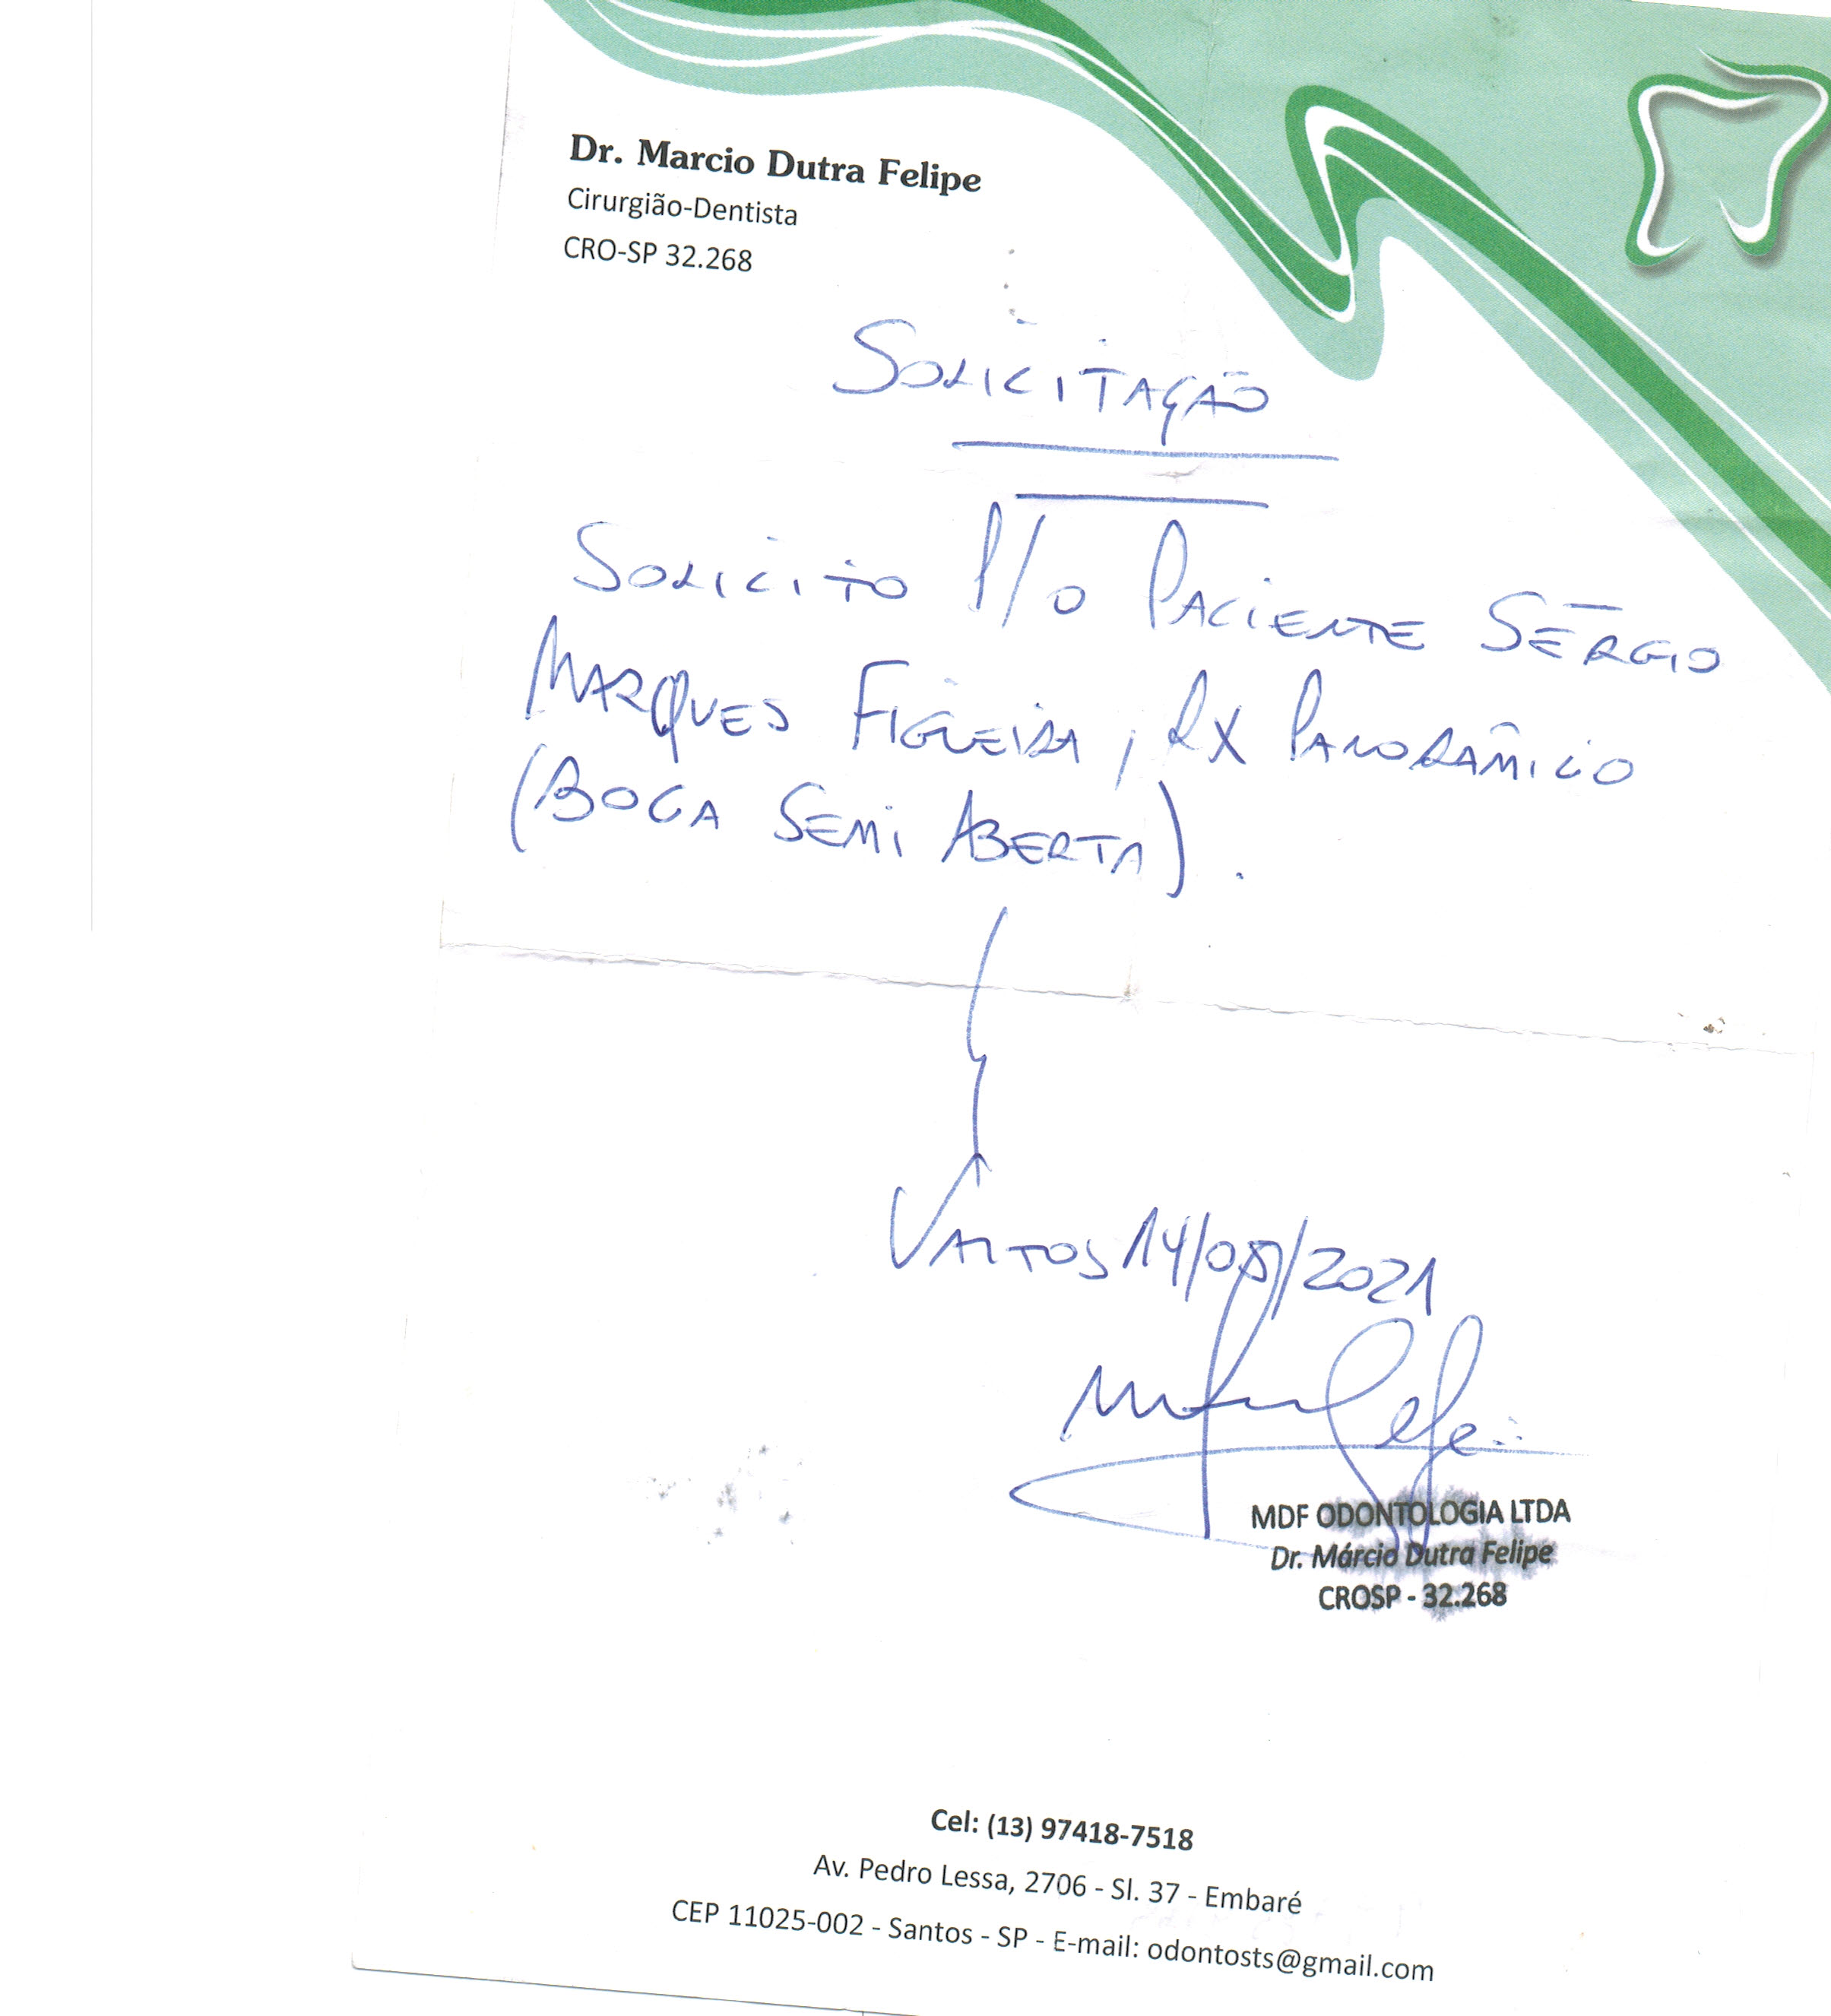 Dr. Marcio Dutra Felipe
Cirurgião-Dentista
CRO-SP 32.268
SOLICITAÇÃO
SOLICITO P/O PACIENTE SÉRGIO
MARQUES FIGUEIRA, RX PANORÂMICO
(BOCA SEMI ABERTA).
14/08/2021
MDF ODONTOLOGIA LTDA
Dr. Márcio Dutra Felipe
CROSP - 32.268
Cel: (13) 97418-7518
Av. Pedro Lessa, 2706 - Sl. 37 - Embaré
CEP 11025-002 - Santos - SP - E-mail: odontosts@gmail.com